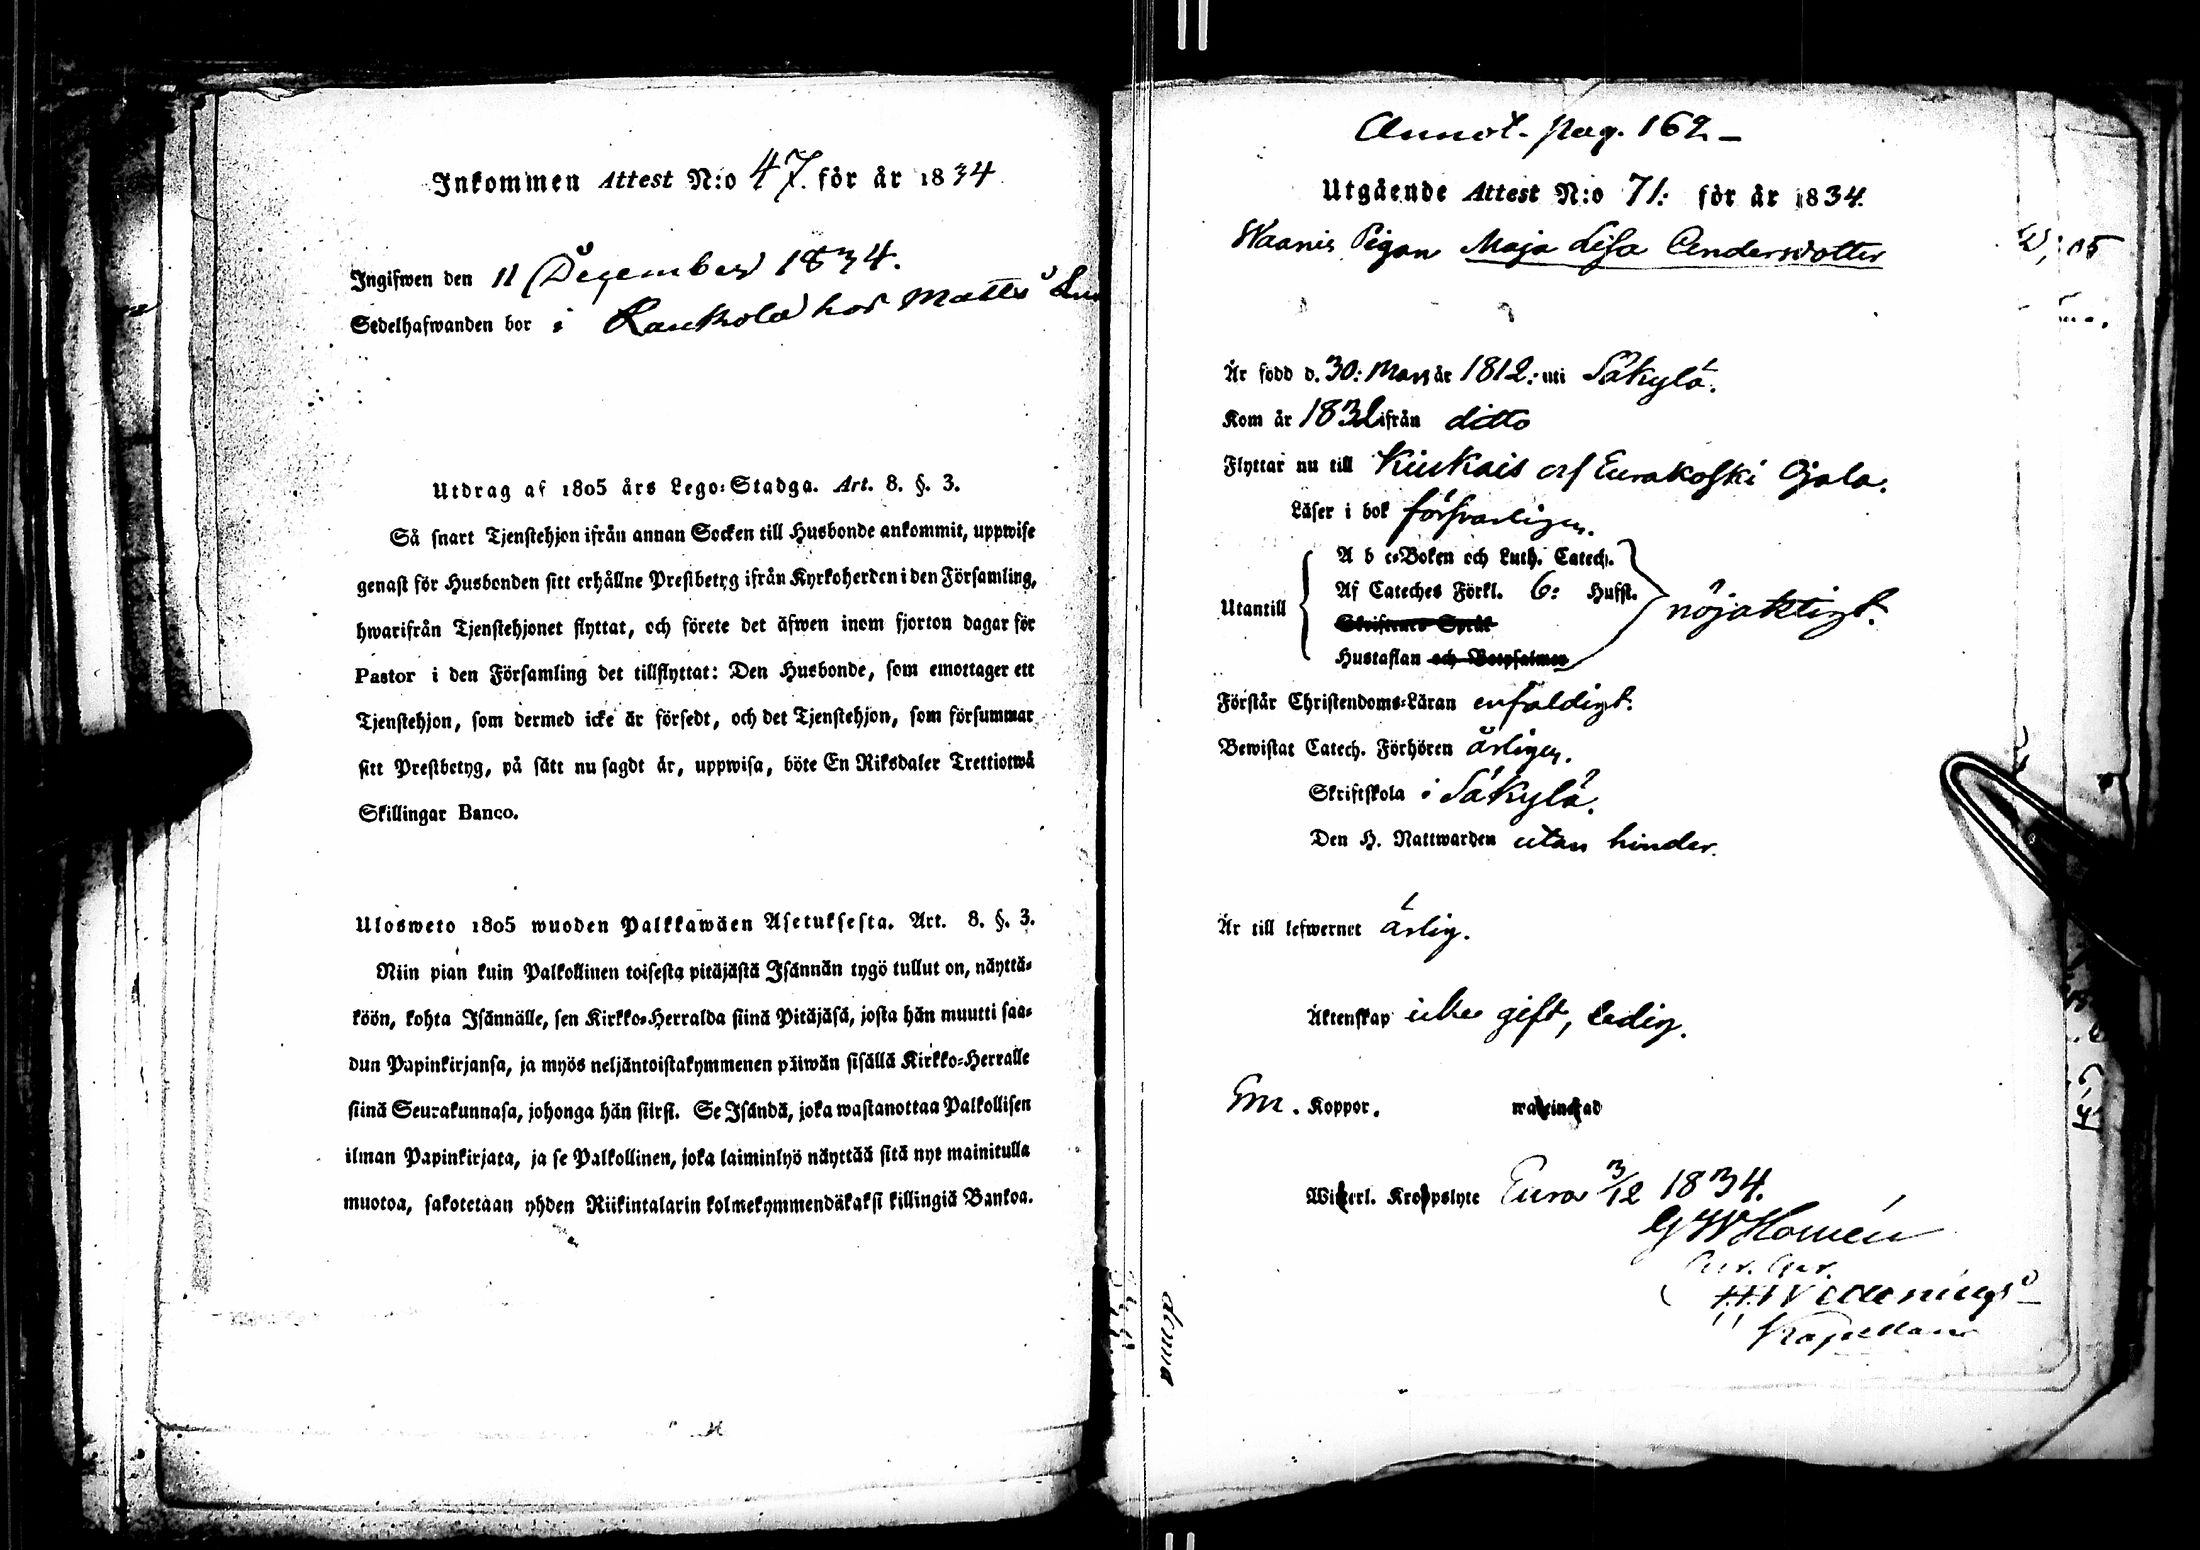 Inkommen Attest N:o 47. för år 1834
Ingifwen den 11 December 1834.
Sedelhafwanden bor i Kaukola hos Matts
Utdrag af 1805 års Lego-Stadga. Art. 8. §. 3.
Så snart Tjenstehjon ifrån annan Socken till Husbonde ankommit, uppwise
genast för Husbonden sitt erhållne Prestbetyg ifrån Kyrkoherden i den Församling,
hwarifrån Tjenstehjonet flyttat, och förete det äfwen inom fjorton dagar för
Pastor i den Församling det tillflyttat: Den Husbonde, som emottager ett
Tjenstehjon, som dermed icke är försedt, och det Tjenstehjon, som försummar
sitt Prestbetyg, på sätt nu sagdt är, uppwisa, böte En Riksdaler Trettiotwå
Skillingar Banco.
Ulosweto 1805 wuoden Palkkawäen Asetuksesta. Art. 8. §. 3.
Niin pian kuin Palkollinen toisesta pitäjästä Isännän tygö tullut on, näyttä-
köön, kohta Isännälle, sen Kirkko-Herralda siinä Pitäjäsä, josta hän muutti saa-
dun Papinkirjansa, ja myös neljäntoistakymmenen päiwän sisällä Kirkko-Herralle
siinä Seurakunnasa, johonga hän siirsi. Se Isändä, joka wastanottaa Palkollisen
ilman Papinkirjata, ja se Palkollinen, joka laiminlyö näyttää sitä nyt mainitulla
muotoa, sakotetaan yhden Riikintalarin kolmekymmendäkaksi killingiä Bankoa.
Annot. pag. 162 –
Utgående Attest N:o 71: för år 1834.
Waanis Pigan Maja Lisa Andersdotter
Är född d. 30: Mars år 1812: uti Säkylä.
Kom år 1832 ifrån ditto
Flyttar nu till Kiukais och Eurakoski
Läser i bok försvarligen.
A b c-Boken och Luth. Catech.
Af Cateches Förkl. 6: Hufst.
Utantill nöjaktigt.
Skriftenes Språk
Hustaflan och Botpsalmer
Förstår Christendoms-Läran enfaldigt.
Bewistat Catech. Förhören årligen.
Skriftskola i Säkylä.
Den H. Nattwarden utan hinder.
Är till lefwernet ärlig.
Äktenskap icke gift, ledig.
Koppor. waccinerad
Witterl. Kroppslyte Eura 3/12 1834.
G W Homén